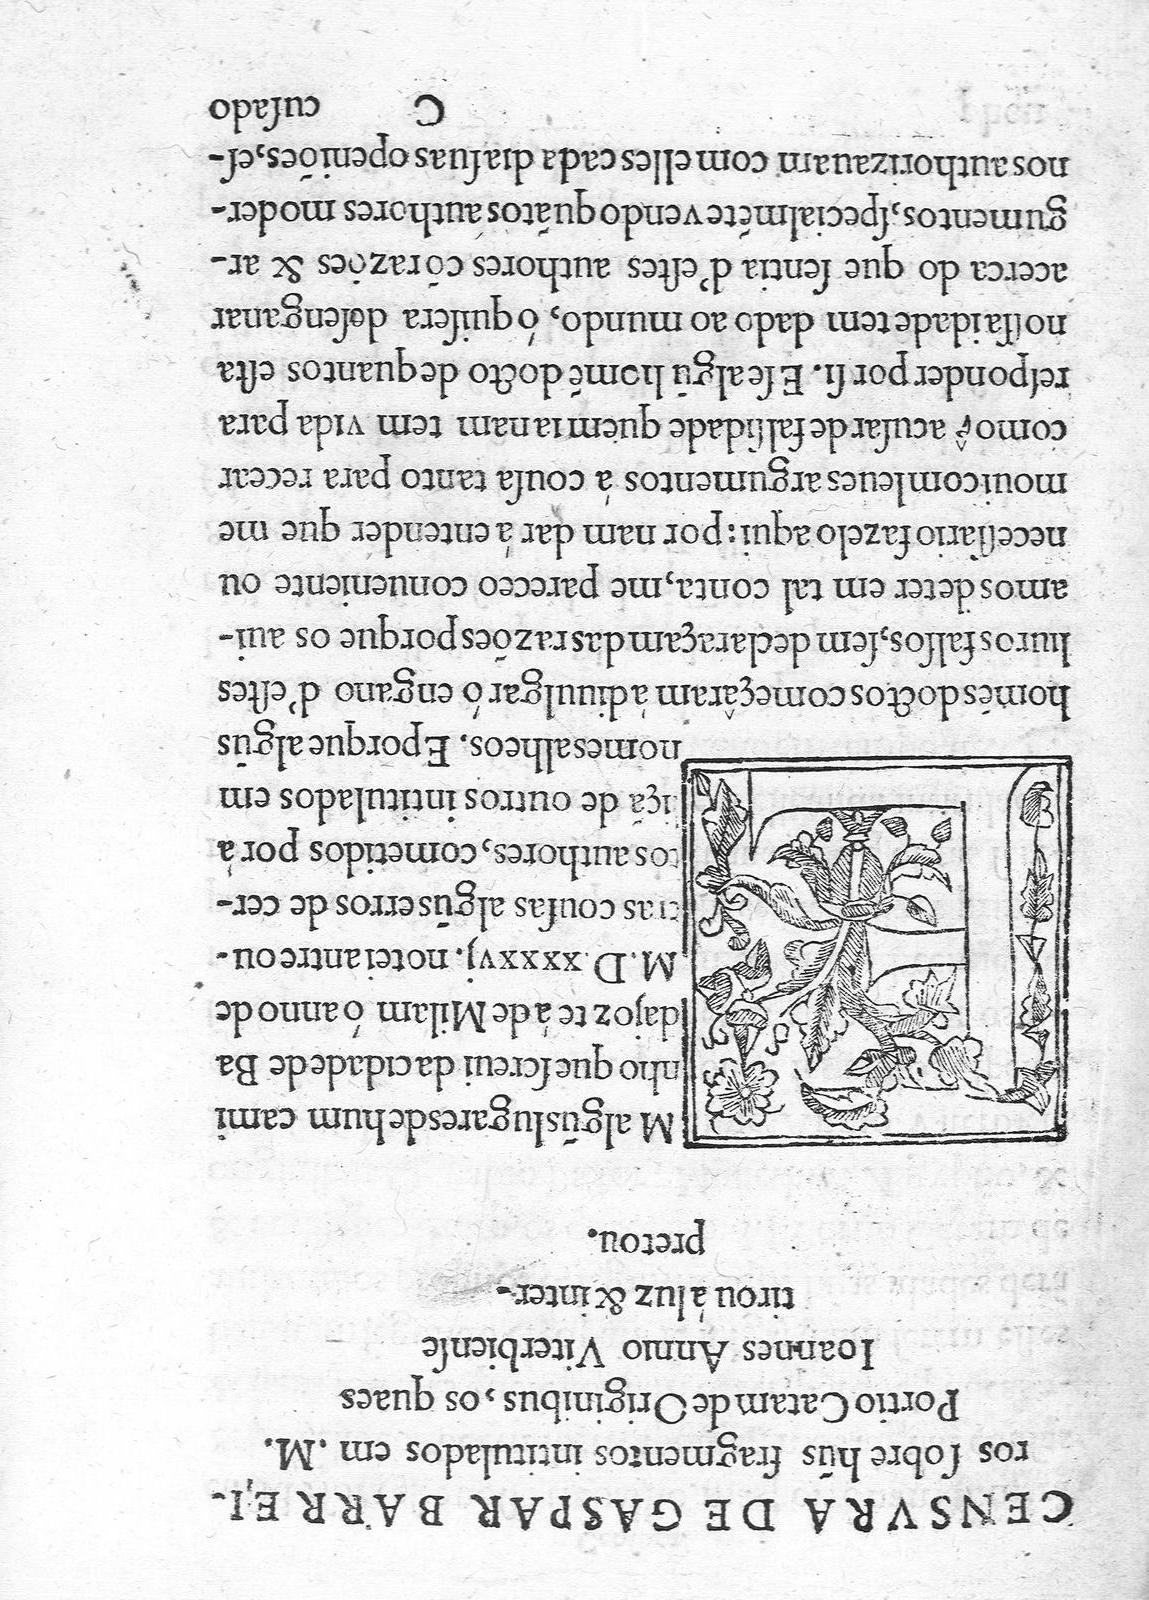 CENSVRA DE GASPAR BARREI-
ros ſobre hũs fragmentos intitulados em .M.
Portio Catam de Originibus, os quaes
Ioannes Annio Viterbienſe
tirou á luz & inter-
pretou.
EM algũs lugares de hum cami
nho que ſcreui da cidade de Ba
dajoz te á de Milam ó anno de
M. D. xxxxvj. notei antre ou-
tras couſas algũs erros de cer-
tos authores, cometidos por á
liçã de outros intitulados em
nomes alheos. E porque algũs
homẽs doctos começâram á diuulgar ó engano d'eſtes
liuros falſos, ſem declaraçam das razões porque os aui-
amos de ter em tal conta, me pareceo conueniente ou
neceſſario fazelo aqui: por nam dar á entender que me
moui com leues argumentos á couſa tanto para recear
como ê acuſar de falſidade quem ia nam tem vida para
reſponder por ſi. E ſe algũ homẽ docto de quantos eſta
noſſa idade tem dado ao mundo, ó quiſera deſenganar
acerca do que ſentia d'eſtes authores cõ razões & ar-
gumentos, ſpecialmẽte vendo quãtos authores moder-
nos authorizauam com elles cada dia ſuas openiões, eſ-
C cuſado